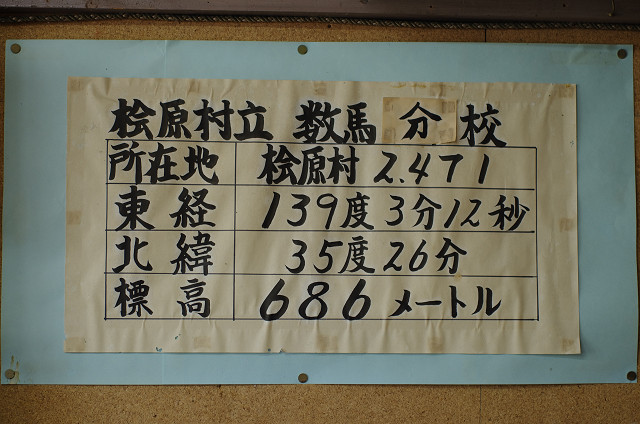 桧原村立 数馬 分 校
所在地 桧原村 2.471
東経 139度 3分12秒
北緯 35度 26分
標高 686 メートル